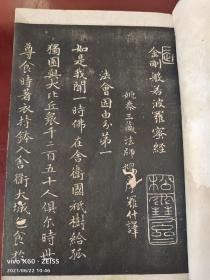 金剛般若波羅蜜經
姚秦三藏法師鳩羅什譯
法會因由分第一
如是我聞一時佛在舍衛國祇樹給孤
獨園與大比丘衆千二百五十人俱尒時世
尊食時著衣持鉢入舍衛大城乞食於
松雪齋
vivo X60 · ZEISS
2021/06/22 10:46